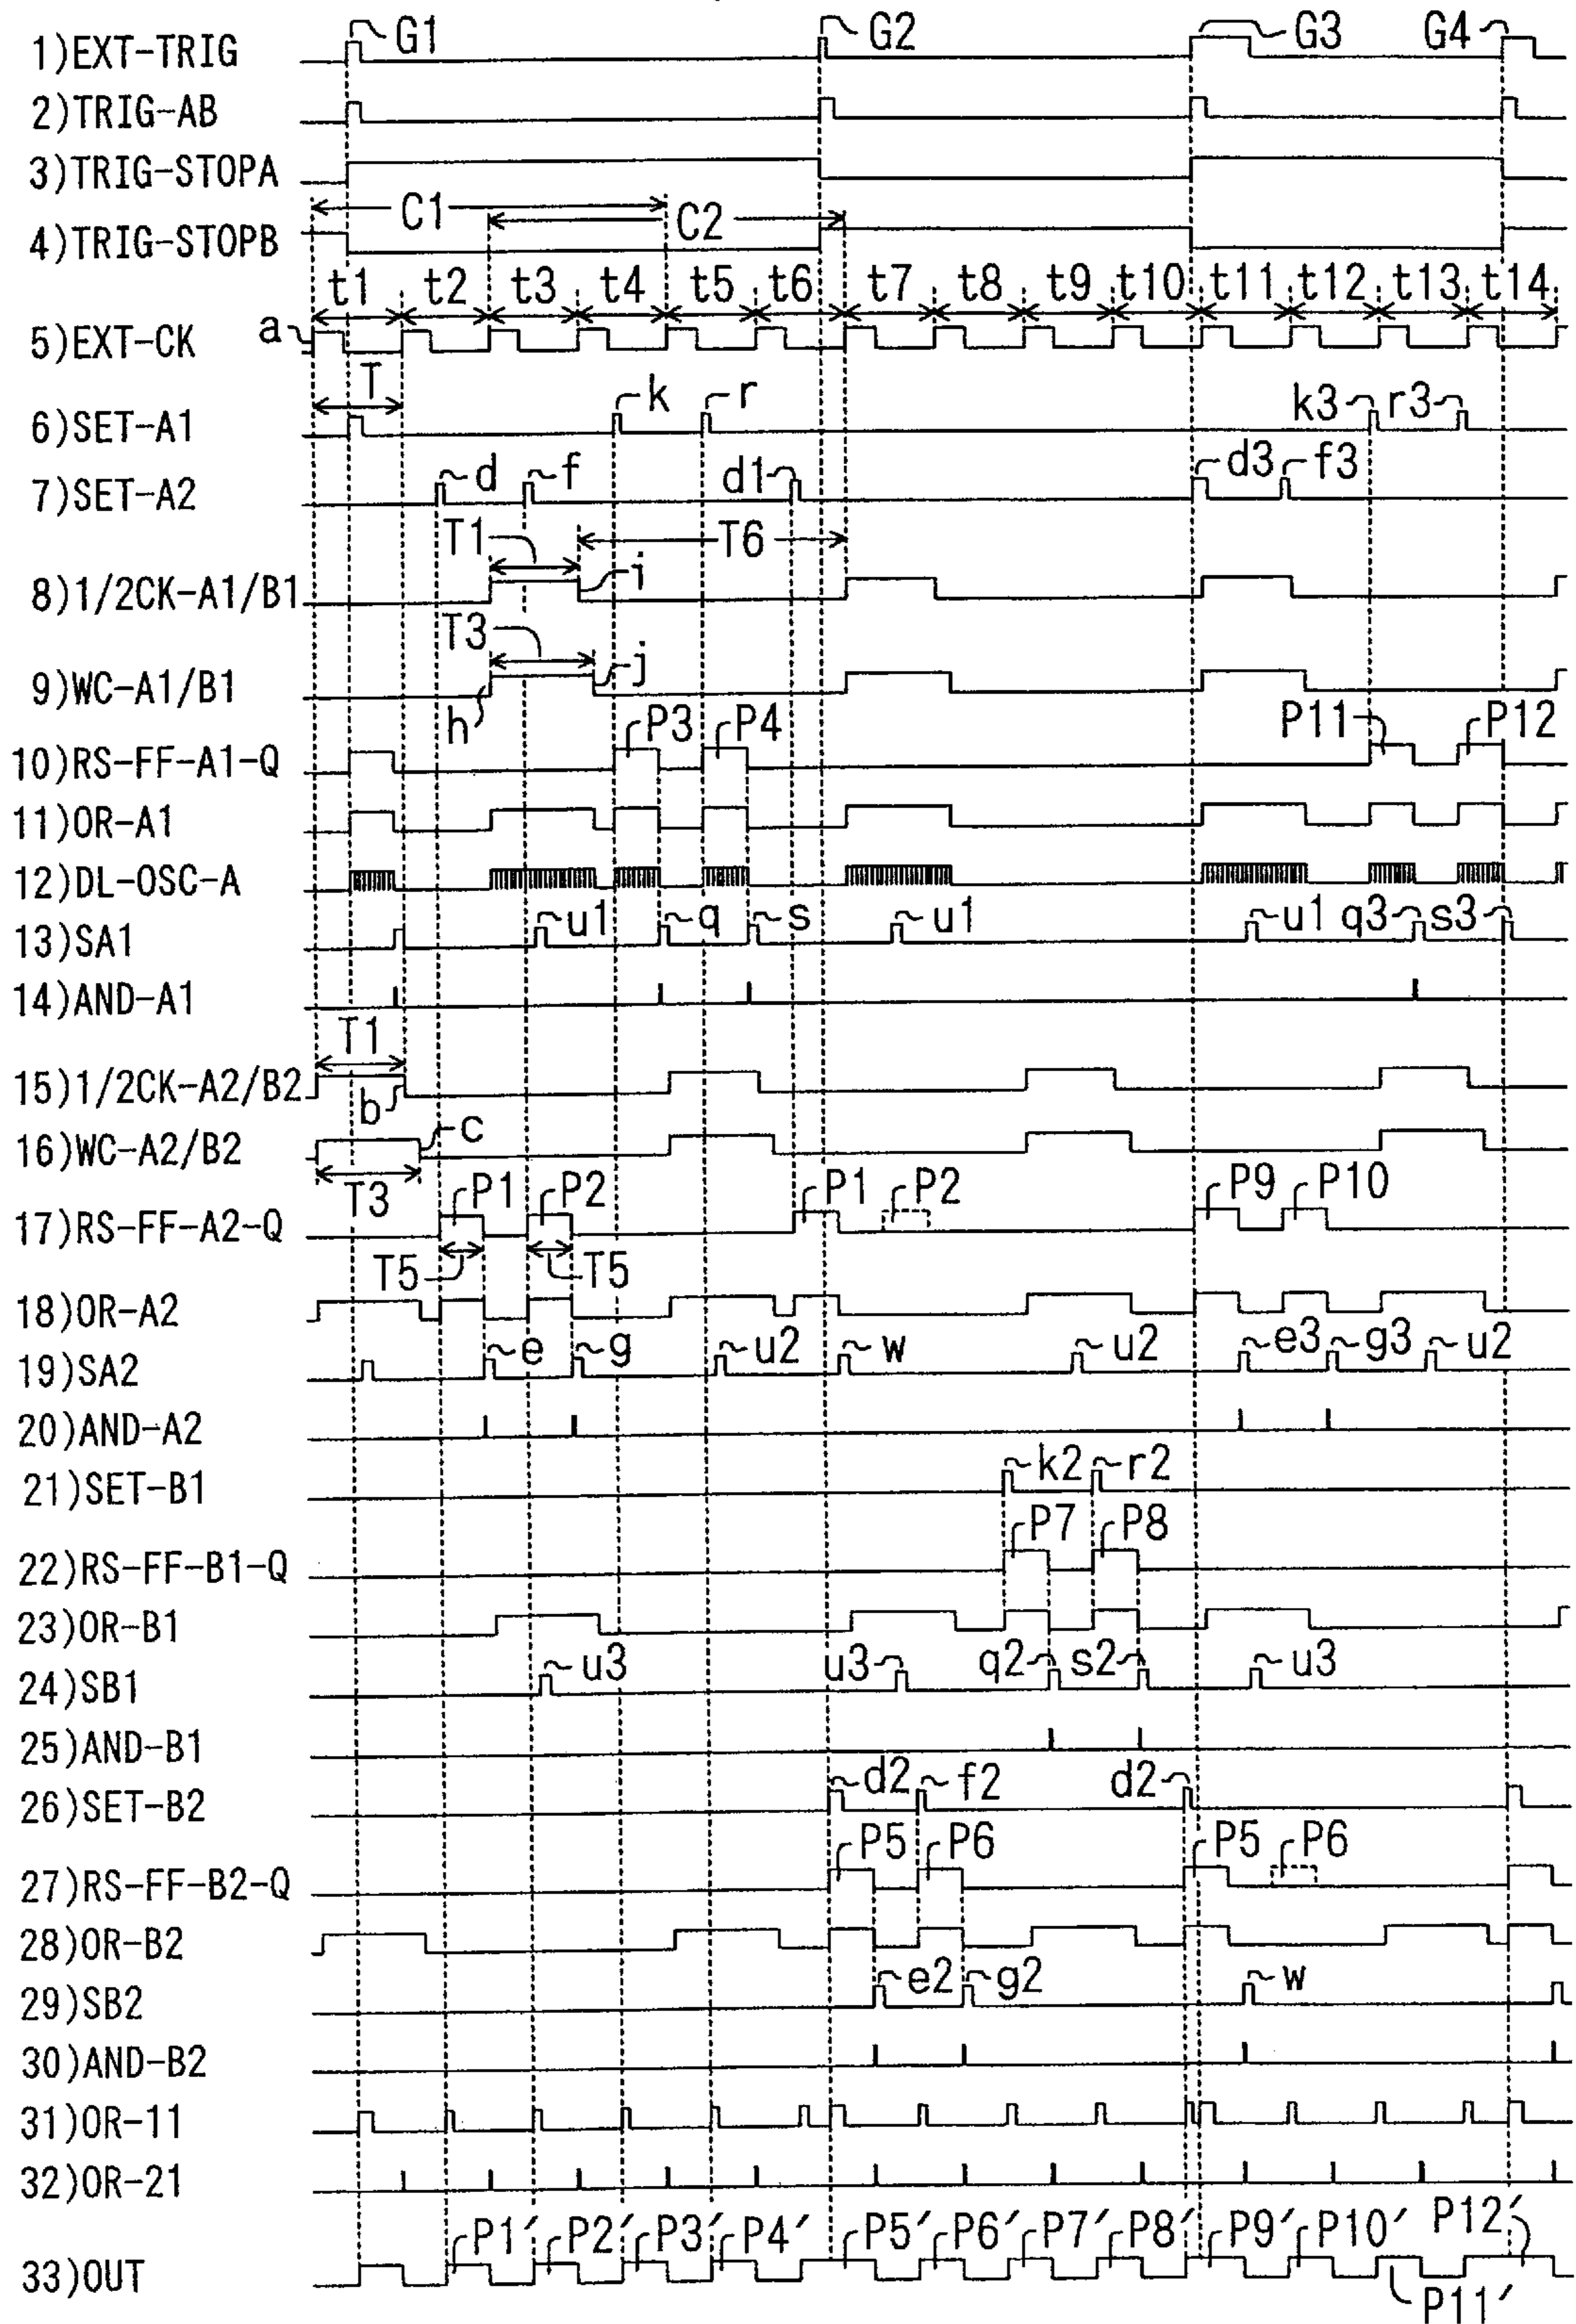 1)EXT-TRIG G1 G2 G3 G4
2)TRIG-AB
3)TRIG-STOPA
C1 C2
4)TRIG-STOPB
t1 t2 t3 t4 t5 t6 t7 t8 t9 t10 t11 t12 t13 t14
5)EXT-CK a
T
6)SET-A1 k r k3 r3
7)SET-A2 d f d1 d3 f3
T1 T6
8)1/2CK-A1/B1 i
T3
9)WC-A1/B1 h j
10)RS-FF-A1-Q P3 P4 P11 P12
11)OR-A1
12)DL-OSC-A
13)SA1 u1 q s u1 u1 q3 s3
14)AND-A1
T1
15)1/2CK-A2/B2 b
16)WC-A2/B2 c
T3
17)RS-FF-A2-Q P1 P2 P1 P2 P9 P10
T5 T5
18)OR-A2
19)SA2 e g u2 w u2 e3 g3 u2
20)AND-A2
21)SET-B1 k2 r2
22)RS-FF-B1-Q P7 P8
23)OR-B1
24)SB1 u3 u3 q2 s2 u3
25)AND-B1
26)SET-B2 d2 f2 d2
27)RS-FF-B2-Q P5 P6 P5 P6
28)OR-B2
29)SB2 e2 g2 w
30)AND-B2
31)OR-11
32)OR-21
33)OUT P1′ P2′ P3′ P4′ P5′ P6′ P7′ P8′ P9′ P10′ P12′
P11′